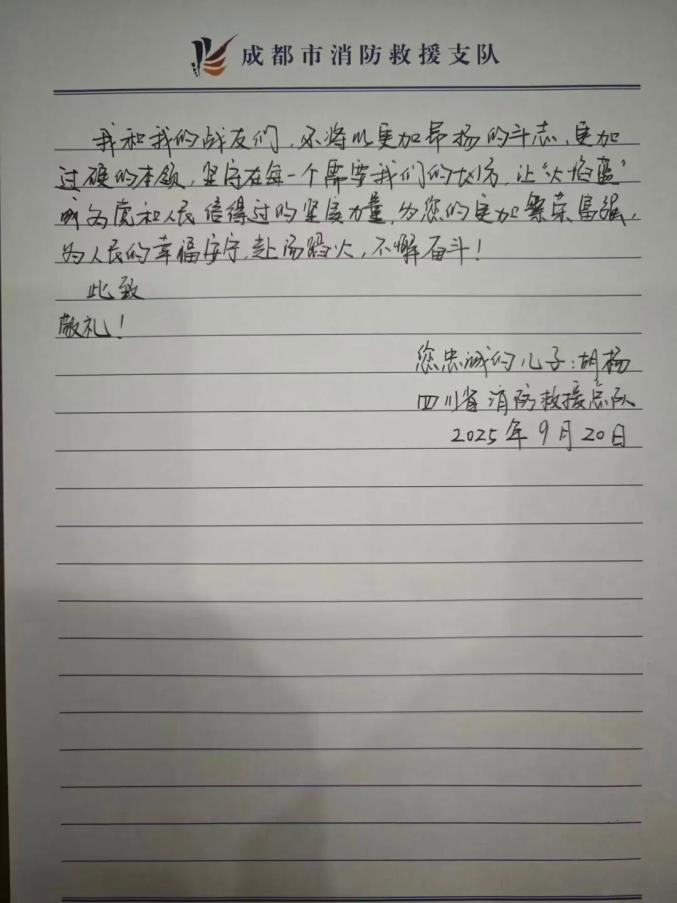 成都市消防救援支队
我和我的战友们,必将以更加昂扬的斗志、更加
过硬的本领,坚守在每一个需要我们的地方,让“火焰蓝”
成为党和人民信得过的坚实力量,为您的更加繁荣富强,
为人民的幸福安宁,赴汤蹈火,不懈奋斗!
此致
敬礼!
您忠诚的儿子:胡杨
四川省消防救援总队
2025年9月20日